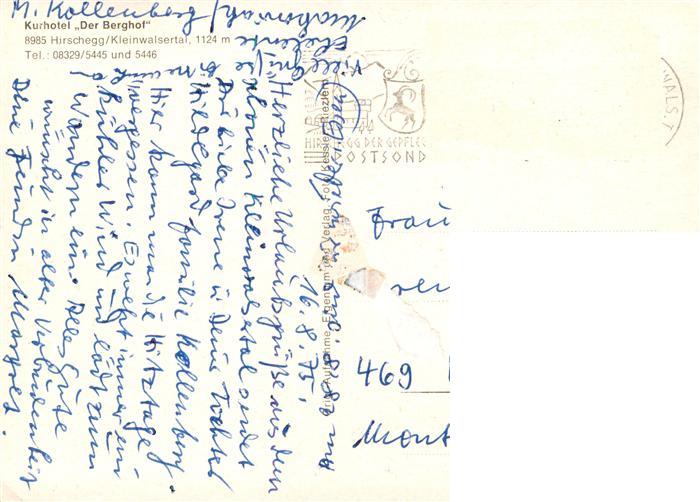 M. Kollenberg
Kurhotel „Der Berghof"
8985 Hirschegg/Kleinwalsertal, 1124 m
Tel.: 08329/5445 und 5446
16.8.75
Herzliche Urlaubsgrüße aus dem
schönen Kleinwalsertal sendet
Dir liebe Irene u. Deine Tochter
Hildegard Familie Kollenberg.
Hier kann man die Hitztage
vergessen. Es weht immer ein
kühler Wind und lädt zum
Wandern ein. Alles Gute
wünscht in alter Verbundenheit
Deine Freundin Margret.
Viele
Grüße
HIRSCHEGG DER GEPFLEG
POSTSOND
WALS.
Aufnahme, Eigentum und Verlag Foto Kessler, Riezlern
Frau
469
Mont